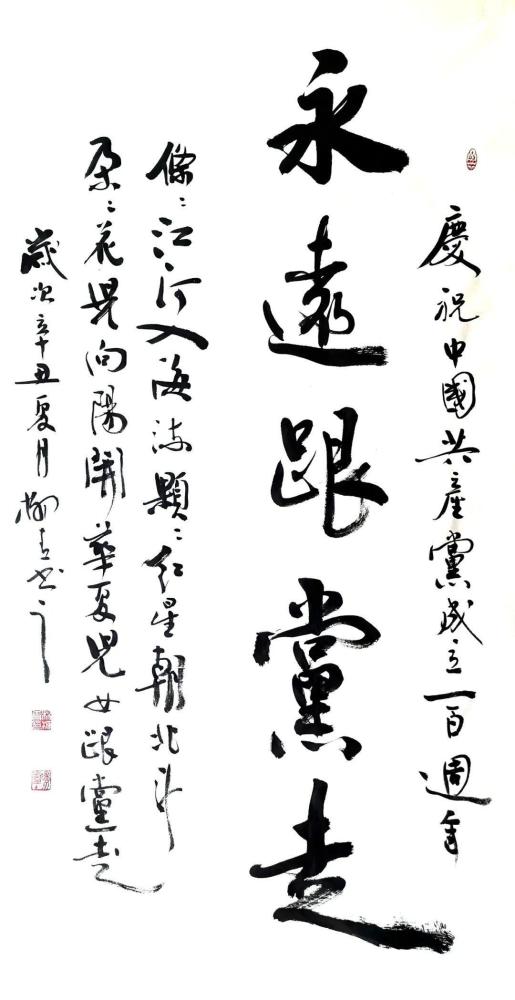 慶祝中國共產黨成立一百週年
永遠跟黨走
條條江河入海流顆顆紅星朝北斗
朵朵花兒向陽開華夏兒女跟黨走
歲次辛丑夏月柳青書